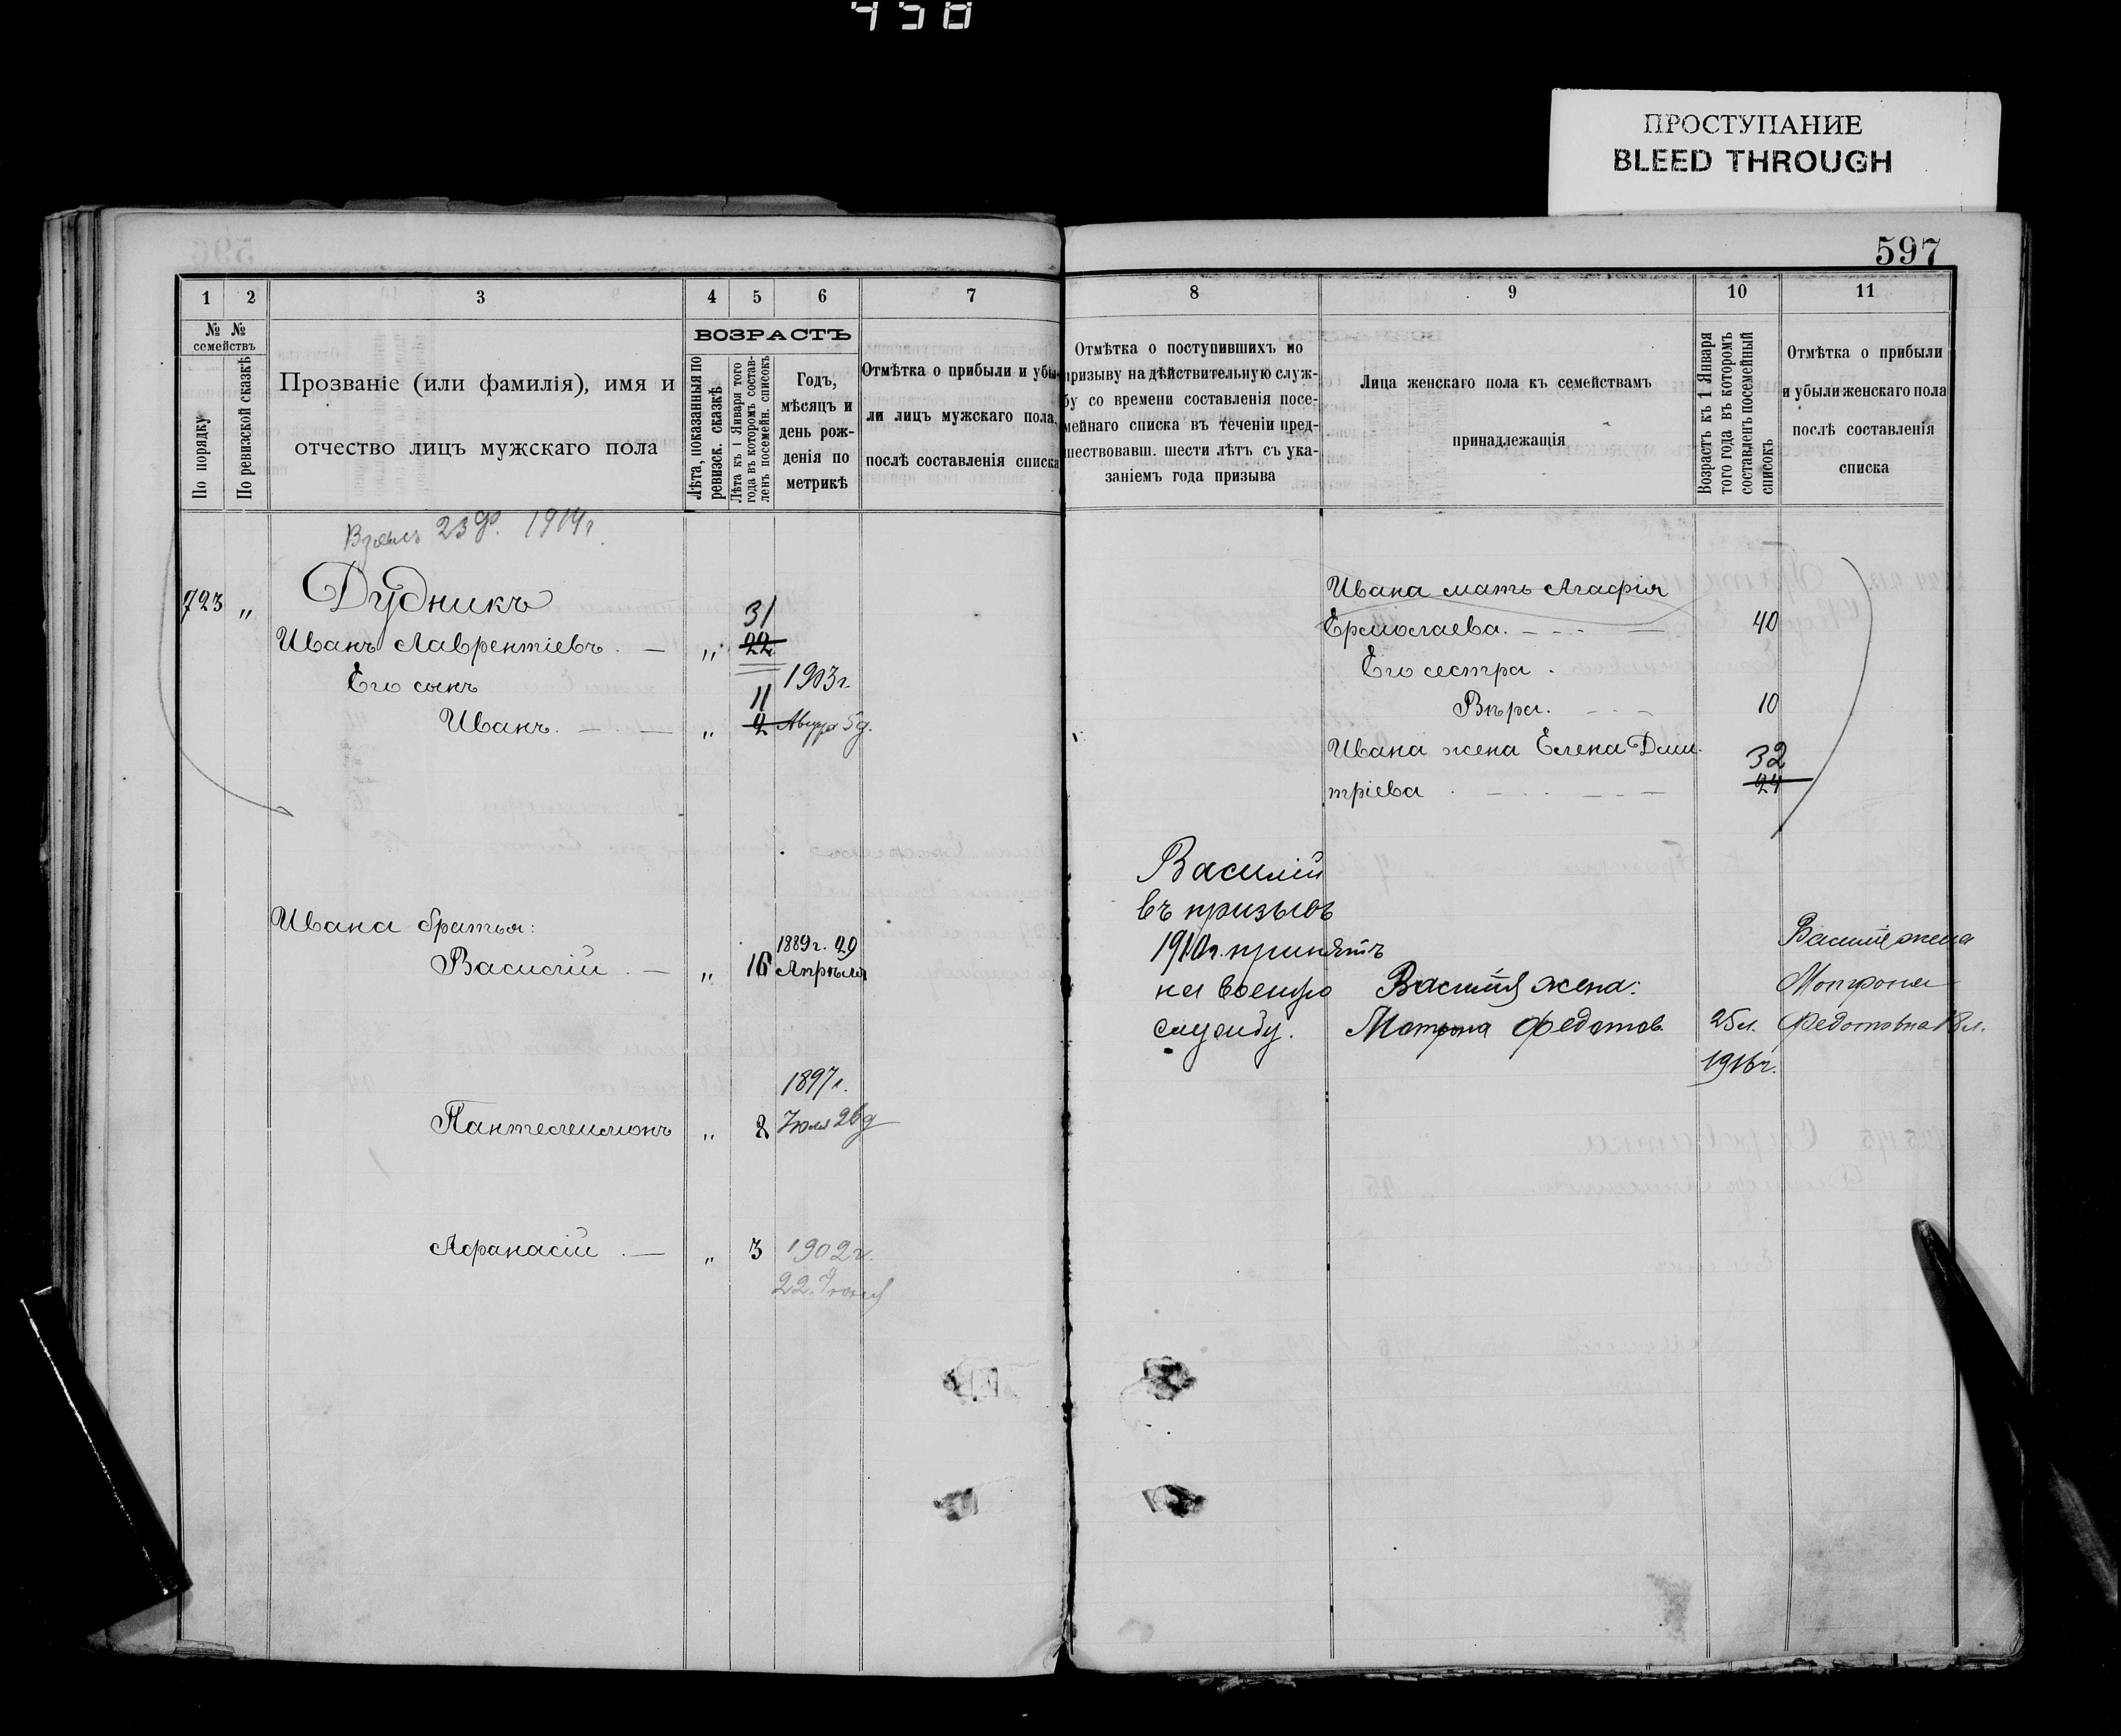 458
ПРОСТУПАНИЕ
BLEED THROUGH
597
1 2 3 4 5 6 7
№ № семействъ
По порядку
По ревизской сказкѣ
Прозваніе (или фамилія), имя и
отчество лицъ мужскаго пола
ВОЗРАСТЪ
Лѣта, показанныя по
ревизск. сказкѣ
Лѣта къ 1 Января того
года въ которомъ состав-
ленъ посемейн. списокъ
Годъ,
мѣсяцъ и
день рож-
денія по
метрикѣ
Отмѣтка о прибыли и убы-
ли лицъ мужскаго пола,
послѣ составленія списка
8 9 10 11
Отмѣтка о поступившихъ по
призыву на дѣйствительную служ-
бу со времени составленія посе-
мейнаго списка въ теченіи пред-
шествовавш. шести лѣтъ съ ука-
заніемъ года призыва
Лица женскаго пола къ семействамъ
принадлежащія
Возрастъ къ 1 Января
того года въ которомъ
составленъ посемейный
списокъ
Отмѣтка о прибыли
и убыли женскаго пола
послѣ составленія
списка
23 1914г.
723 " Дудникъ
31
Иванъ Лаврентіевъ. — " 22
Его сынъ 1903г.
11
Иванъ. — . — " 2 5д.
Ивана братья:
1889г. 29
Василій . — " 16 Апрѣля
1897г.
Пантелеимонъ " 8 Іюля 26д
Афанасій . — " 3 1902г.
22. Іюля
Ивана мать Агафія
Ермолаева. — - - — 40
Его сестра .
Вѣра. - — - 10
Ивана жена Елена Дми-
32
тріева . — . . — - — 24
Василій
въ призывъ
1910г. принятъ
на военную
службу.
Василія жена:
Матрона Федотов. 25 л.
1916г.
Василія жена
Матрона
Федотовна 18 л.